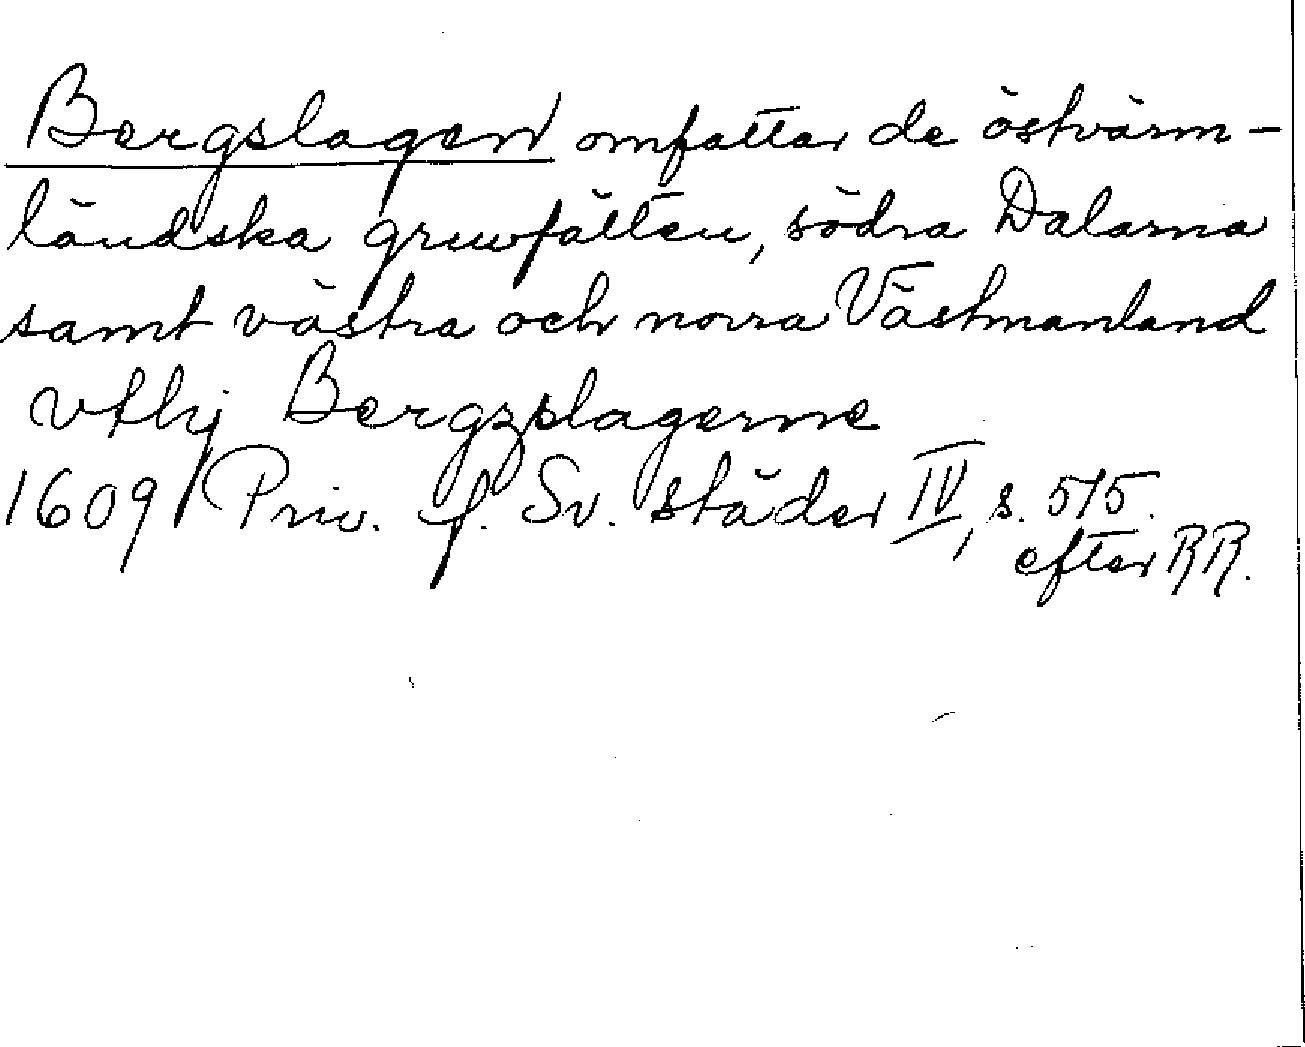 Bergslagen omfattar de östvärm-
ländska gruvfälten, södra Dalarna
samt västra och norra Västmanland
vthj Bergzslagerne
1609 Priv. f. Sv. städer IV, s. 575.
efter RR.